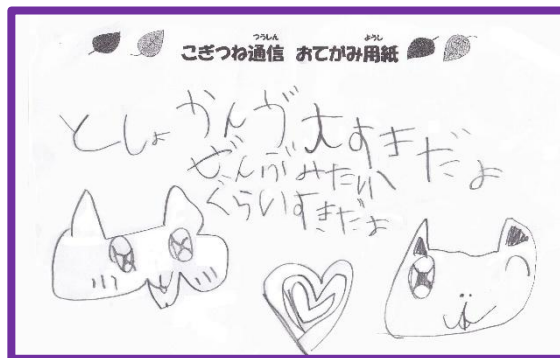 つうしん ようし
こぎつね通信 おてがみ用紙
としょかんが大すきだよ
ぜんぶみたい
ぐらいすきだよ